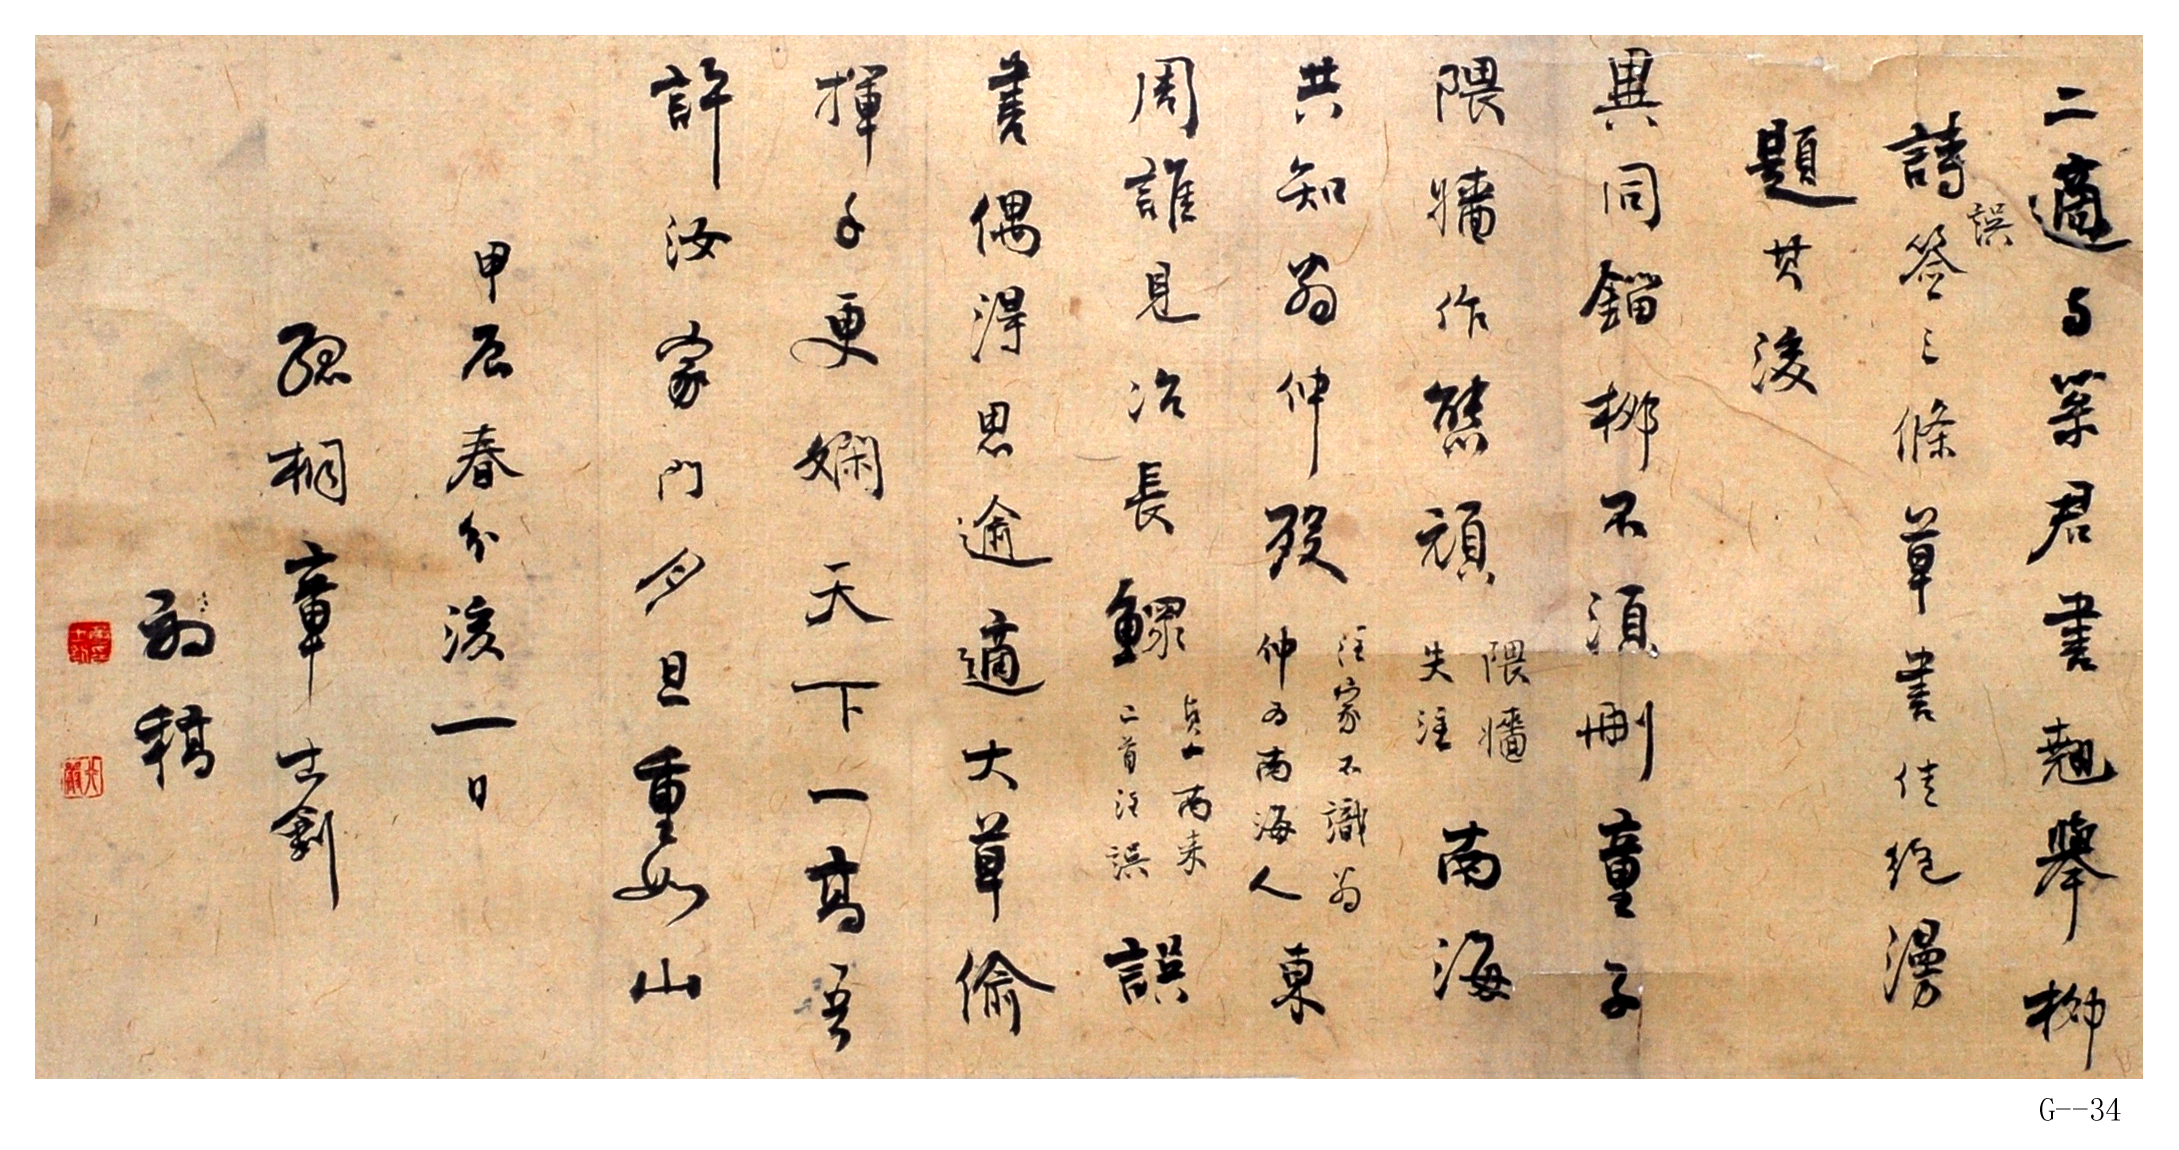 二適与某君書翹舉柳
詩誤签三條草書佳絕漫
題其後
異同錙柳不須刪童子
隈牆作態頑 隈牆失注 南海
共知翁仲殁 注家不識翁仲为南海人 東
周誰見冶長鰥 二首注誤 誤
書偶得思逾適大草偷
揮手更嫻天下一高吾
許汝家門月旦重如山
甲辰春分後一日
孤桐章士釗
初稿
G--34